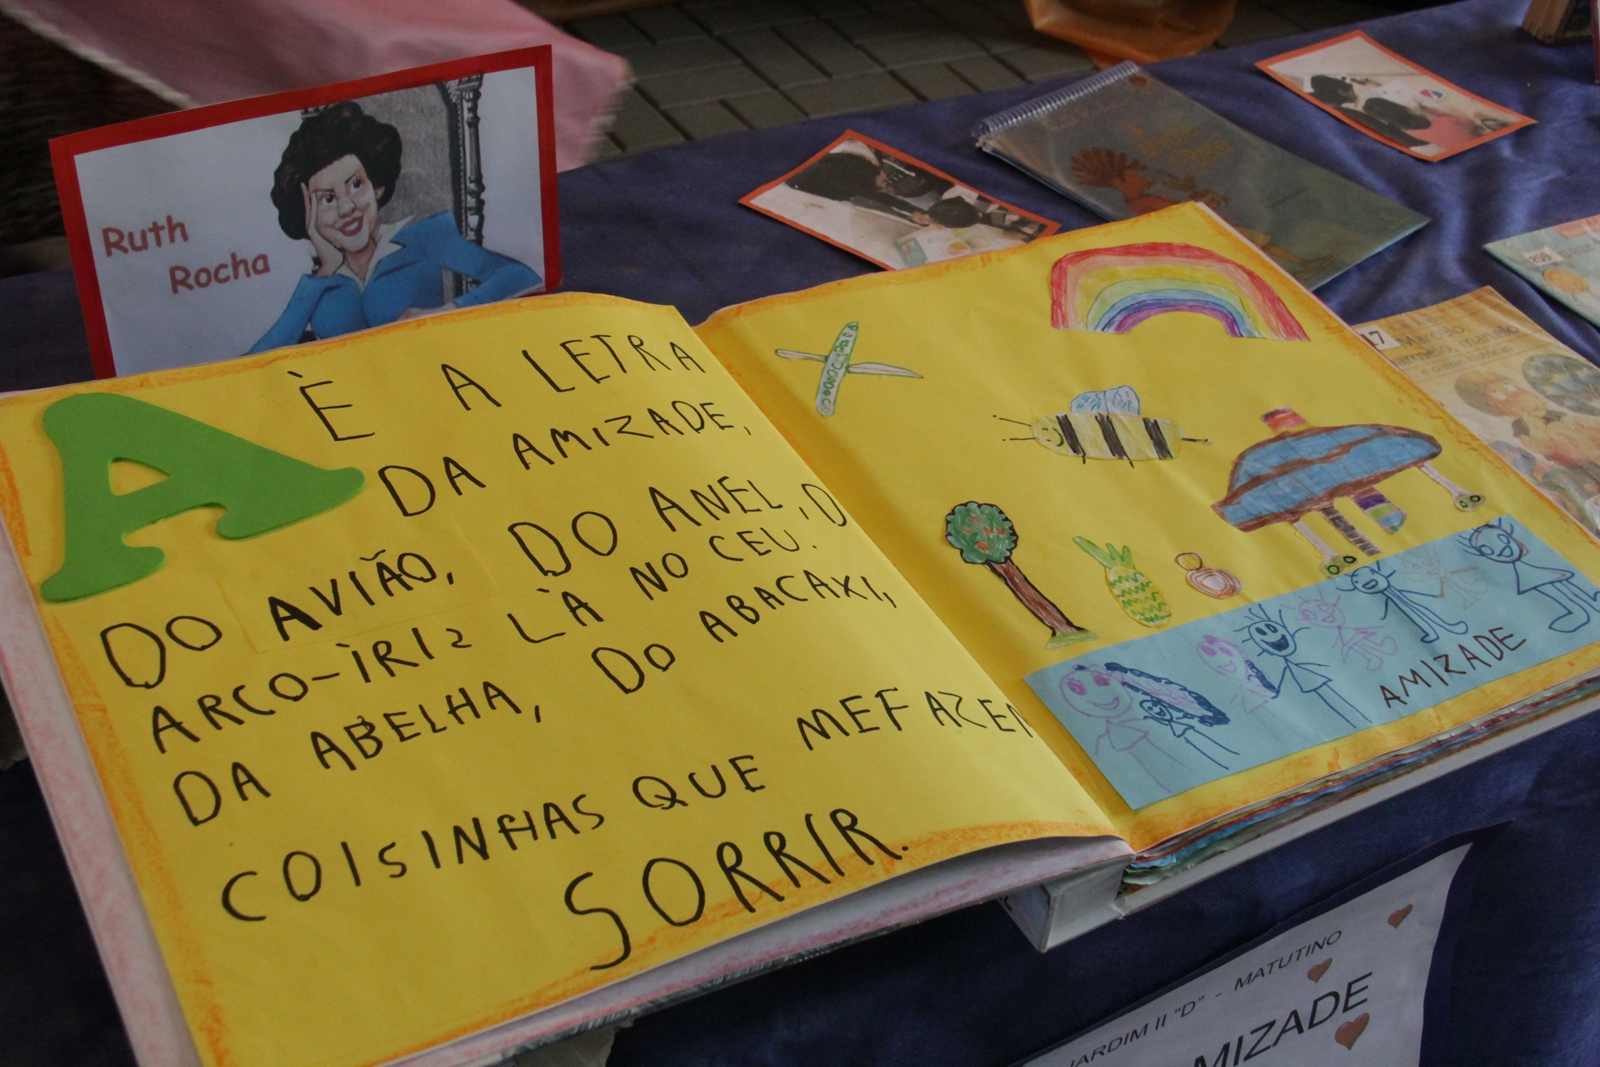 Ruth
Rocha
A È A LETRA
DA AMIZADE,
DO AVIÃO, DO ANEL, D
ARCO-ÌRIZ LÀ NO CEU.
DA ABELHA, DO ABACAXI,
COISINHAS QUE MEFAZEM
SORRIR.
AMIZADE
17
Marcelo
marmelo, martelo
JARDIM II "D" - MATUTINO
AMIZADE